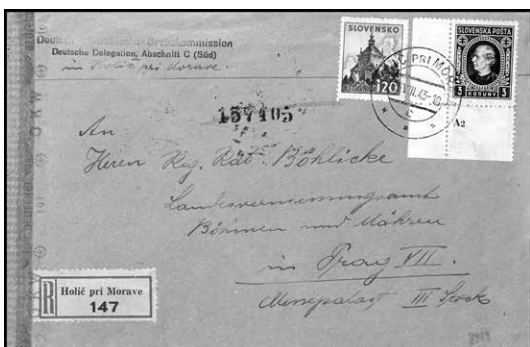 Deutsch-Slowakische Grenzkommission
Deutsche Delegation, Abschnitt C (Süd)
in Holíč pri Morave.
SLOVENSKO
120
SLOVENSKÁ POŠTA
3 KORUNY 3
PRI MO
43-10
A2
OKW
157105
An
Herrn Reg. Rat Böhlicke
Landesvermessungsamt
Böhmen und Mähren
in Prag VII.
Messepalast III. Stock
R Holíč pri Morave
147